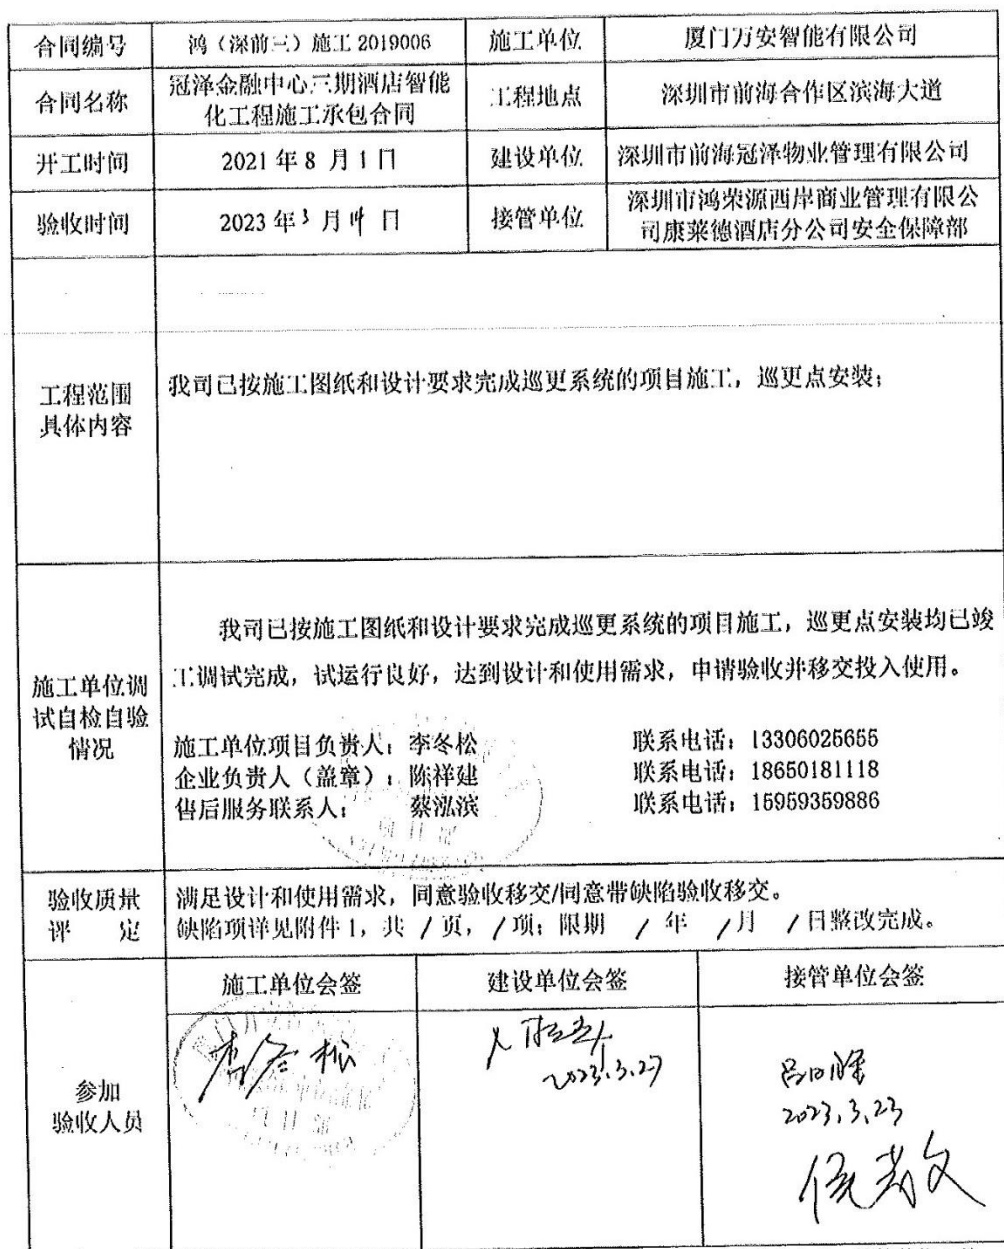 合同编号 鸿（深前三）施工2019006 施工单位 厦门万安智能有限公司
合同名称 冠泽金融中心三期酒店智能化工程施工承包合同 工程地点 深圳市前海合作区滨海大道
开工时间 2021年8月1日 建设单位 深圳市前海冠泽物业管理有限公司
验收时间 2023年3月 日 接管单位 深圳市鸿荣源西岸商业管理有限公司康莱德酒店分公司安全保障部
工程范围
具体内容
我司已按施工图纸和设计要求完成巡更系统的项目施工，巡更点安装；
施工单位调
试自检自验
情况
我司已按施工图纸和设计要求完成巡更系统的项目施工，巡更点安装均已竣
工调试完成，试运行良好，达到设计和使用需求，申请验收并移交投入使用。
施工单位项目负责人：李冬松 联系电话：13306025655
企业负责人（盖章）：陈祥建 联系电话：18650181118
售后服务联系人： 蔡泓滨 联系电话：15959359886
验收质量
评 定
满足设计和使用需求，同意验收移交/同意带缺陷验收移交。
缺陷项详见附件1，共 / 页， / 项；限期 / 年 / 月 / 日整改完成。
施工单位会签 建设单位会签 接管单位会签
参加
验收人员
李冬松
2023.3.27
2023.3.23